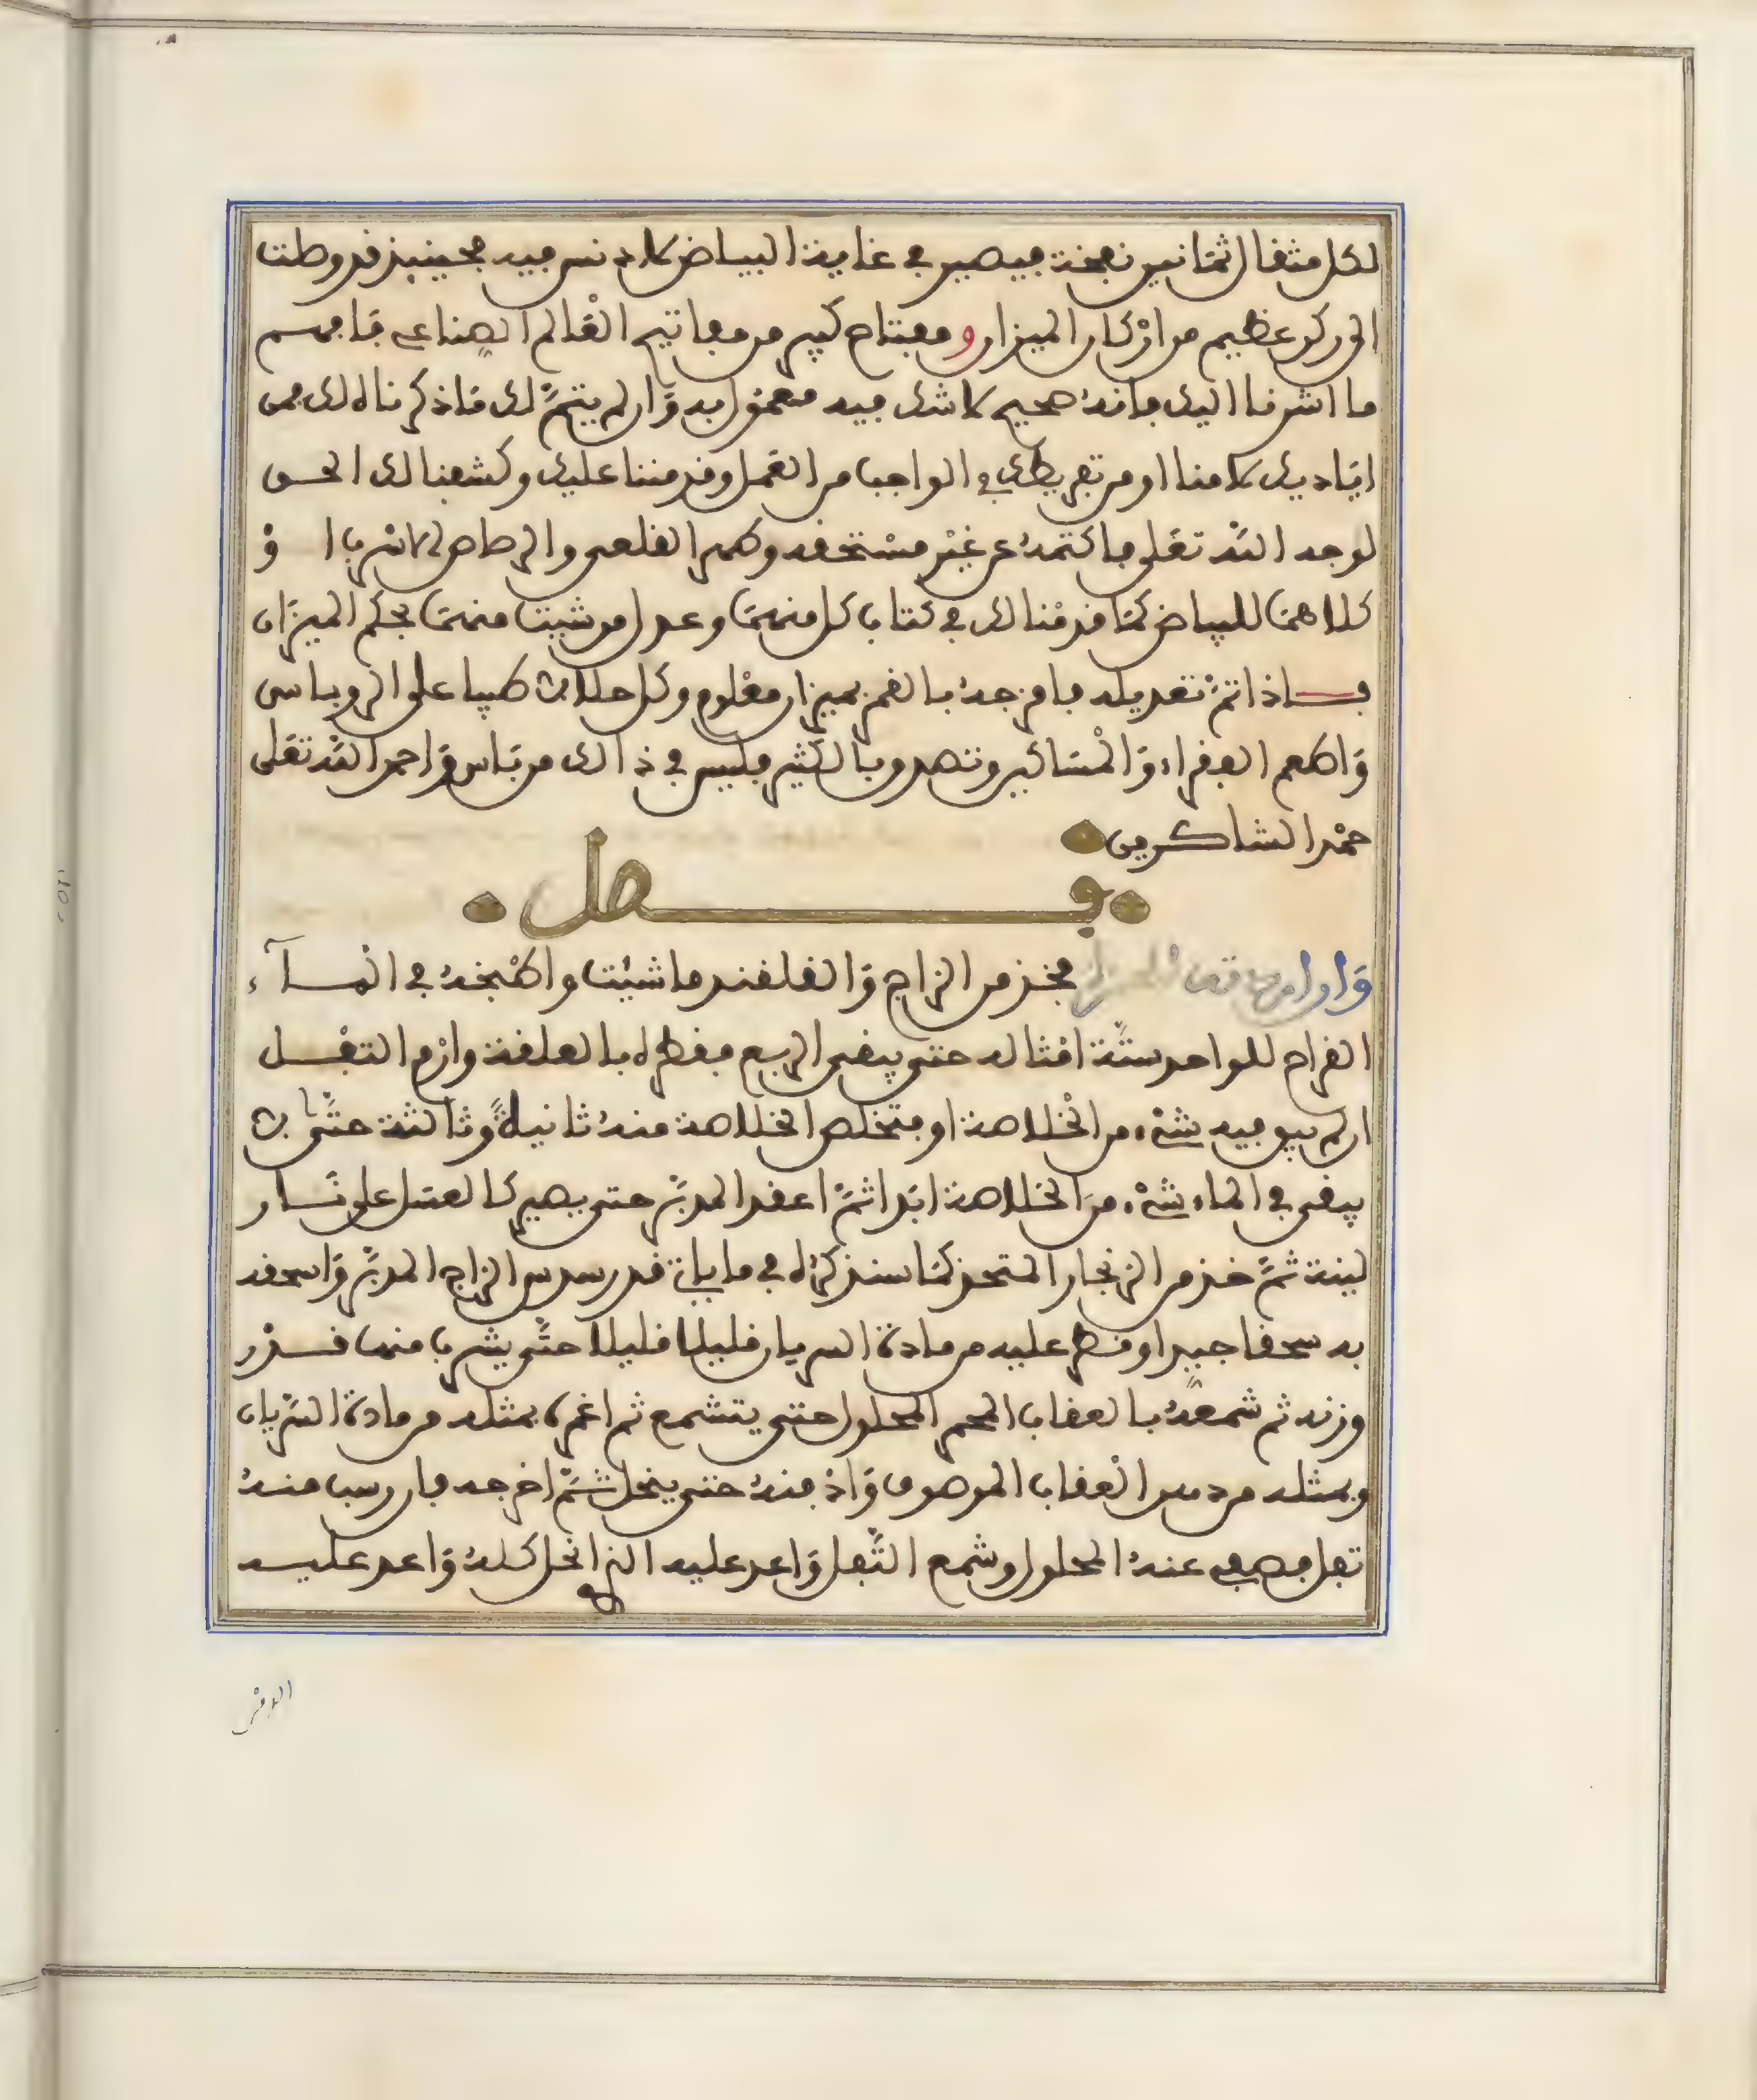 لكل مثقال ثمانين نفخة فيصير في غاية البياض لا دنس فيه فحينئذ قد وصلت
الى ركن عظيم من اركان الميزان و مفتاح كبير من مفاتيح العالم الصناعي فافهم
ما اشرنا اليك فانه صحيح لا شك فيه معمول به وان لم يتم لك ما ذكرناه لك فمن
اياديك لا منا او من تفريطك في الواجب من العمل وقد مننا عليك وكشفنا لك الحق
لوجه الله تعلى فاكتمه عن غير مستحقه وطهر القلعي والرصاص الاسرب ا و
كلاهما للبياض كما قدمنا لك في كتاب كل منهما وعدل من شيت منهما بحكم الميزان
فاذا تم تعديله فامزجه بالقمر بميزان معلوم وكل حلالا طيبا على الروباس
واطعم الفقراء والمساكين وتصدق بالكثير فليس في ذالك من باس واحمد الله تعلى
حمد الشاكرين
فصل
وان اردت فخذ من الزاج والقلقند ما شيت واطبخه في المآء
القراح للواحد ستة امثاله حتى يبقى الربع فقطره بالعلقة وارم التفل
ان لم يبق فيه شيء من الخلاصة او فتخلص الخلاصة منه ثانيا وثالثة حتى لا
يبقى في الماء شيء من الخلاصة ابدا ثم اعقد المدبر حتى يصير كالعسل على نار
لينة ثم خذ من الزنجار المتخذ كما سنذكره في ما ياتي قدر سدس الزاج المدبر واسحقه
به سحقا جيدا وقطر عليه من مادة السريان قليلا قليلا حتى يشرب منها قدر
وزنه ثم شمعه بالعقاب المحمر المحلول حتى يتشمع ثم اغمره بمثله من مادة السريان
وبمثله من دهن العقاب الموصوف وادفنه حتى ينحل ثم اخرجه فان رسب منه
تفل فصفي عنه المحلول وشمع الثفل واعد عليه الذي انحل كله واعد عليه